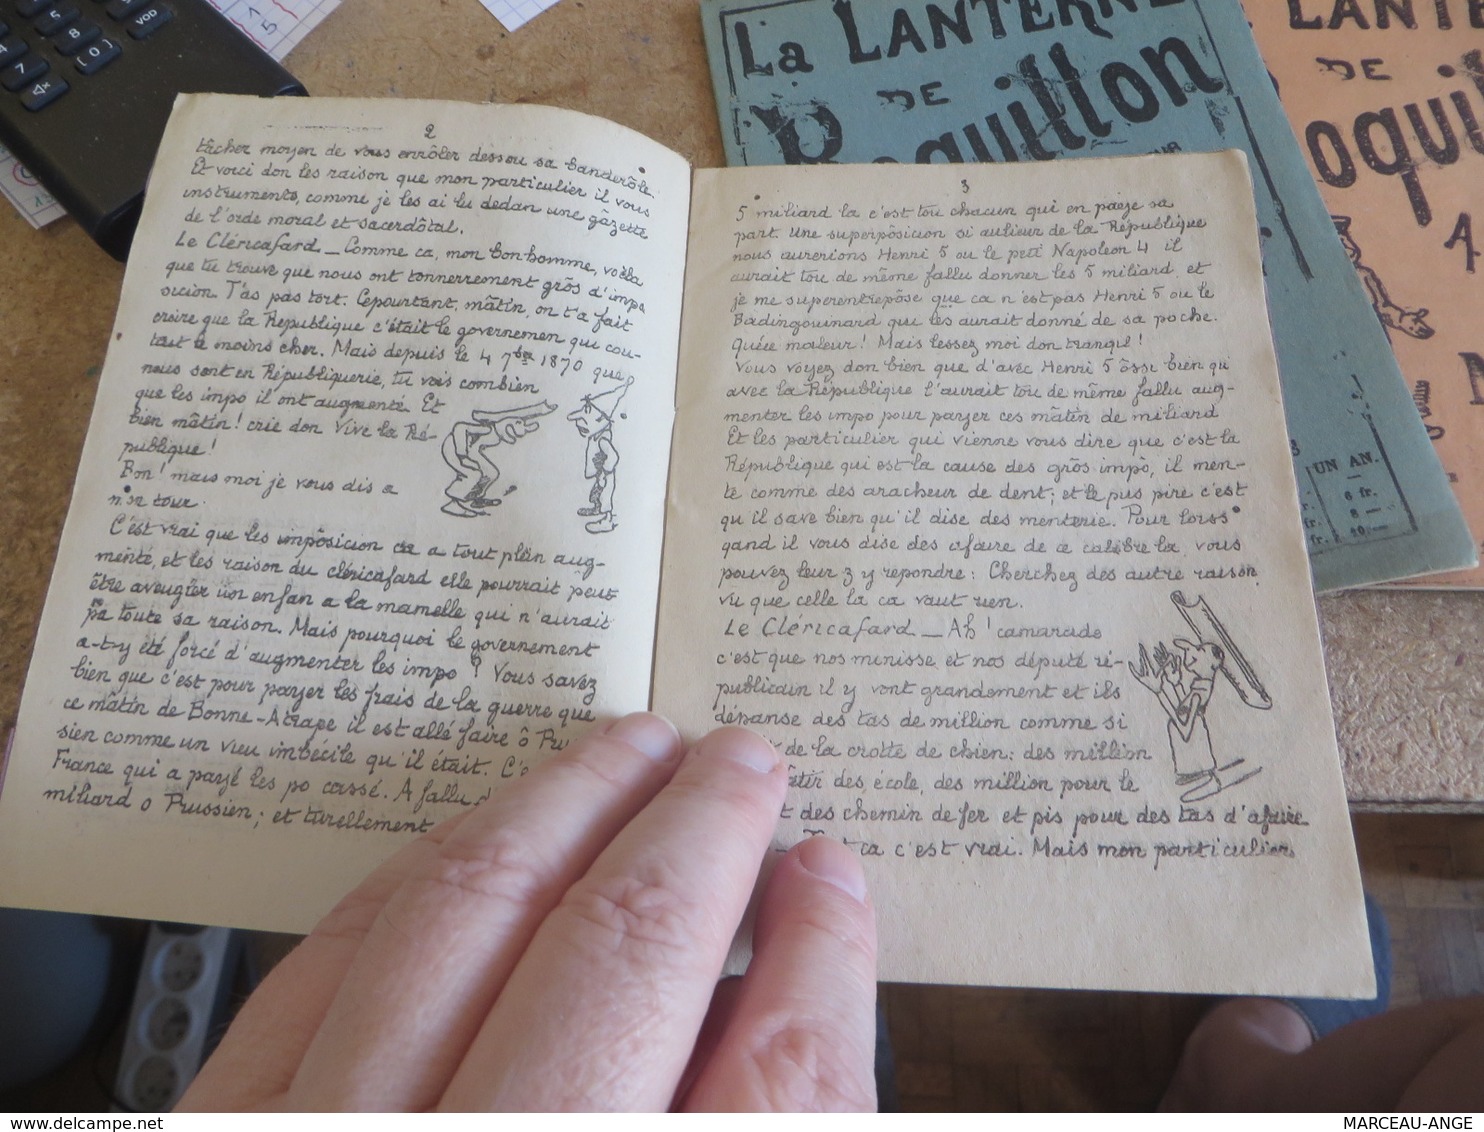 2
tâcher moyen de vous enrôler dessou sa banderôle.
Et voici don les raison que mon particulier il vous
instruments, comme je les ai lu dedan une gâzette
de l'orde moral et sacerdôtal.
Le Cléricafard _ Comme ca, mon bonhomme, voila
que tu trouve que nous ont tonnerrement grôs d'impo
sicion. T'as pas tort. Cepourtant, mâtin, on t'a fait
croire que la République c'était le governemen qui cou-
tait le moins cher. Mais depuis le 4 7bre 1870 que
nous sont en Républiquerie, tu vois combien
que les impo il ont augmenté. Et
bien mâtin! crie don Vive la Ré-
publique!
Bon! mais moi je vous dis a
n'on tour.
C'est vrai que les impôsicion ca a tout plein aug-
menté, et les raison du cléricafard elle pourrait peut
être aveugler un enfan a la mamelle qui n'aurait
pa toute sa raison. Mais pourquoi le governement
a-t-y été forcé d'augmenter les impo? Vous savez
bien que c'est pour payer les frais de la guerre que
ce mâtin de Bonne-Atrape il est allé faire ô Pru
sien comme un vieu imbécile qu'il était. C'
France qui a payé les po cassé. A fallu d
miliard o Prussien; et turellement
3
5 miliard la c'est tou chacun qui en paeye sa
part. Une superpôsicion si aulieur de la République
nous aurerions Henri 5 ou le petit Napoleon 4 il
aurait tou de même fallu donner les 5 miliard, et
je me superentrepôse que ca n'est pas Henri 5 ou le
Badingouinard qui les aurait donné de sa poche.
Quée maleur! Mais lessez moi don tranquil!
Vous voyez don bien que d'avec Henri 5 ôssi bien qu
avec la République l'aurait tou de même fallu aug-
menter les impo pour payer ces mâtin de miliard
Et les particulier qui vienne vous dire que c'est la
République qui est la cause des grôs impô, il men-
te comme des aracheur de dent; et le pus pire c'est
qu'il save bien qu'il dise des menterie. Pour lorss
qand il vous dise des afaire de ce calibre la, vous
pouvez leur z y repondre: Cherchez des autre raison
vu que celle la ca vaut rien.
Le Cléricafard _ Ah! camarade
c'est que nos minisse et nos député ré-
publicain il y vont grandement et ils
dépanse des tas de million comme si
de la crotte de chien: des million
âtir des école, des million pour le
t des chemin de fer et pis pour des tas d'afaire
ca c'est vrai. Mais mon particulier
La LANTERNE
DE
Boquillon
LANT
DE
oqui
A
UN AN.
6 fr.
8 —
fr.
MARCEAU-ANGE